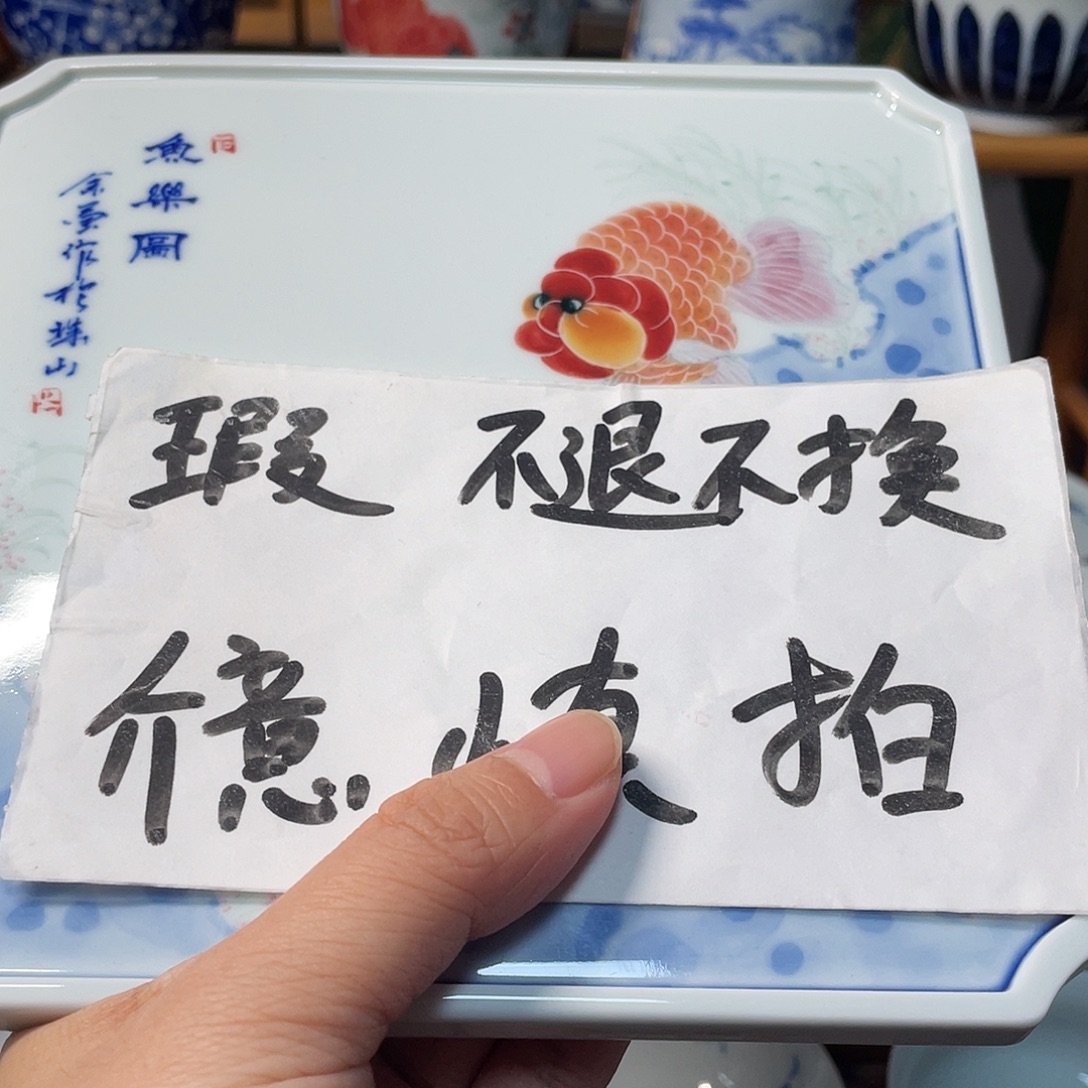 魚樂圖
余雯作於珠山
瑕 不退不换
介意 慎拍